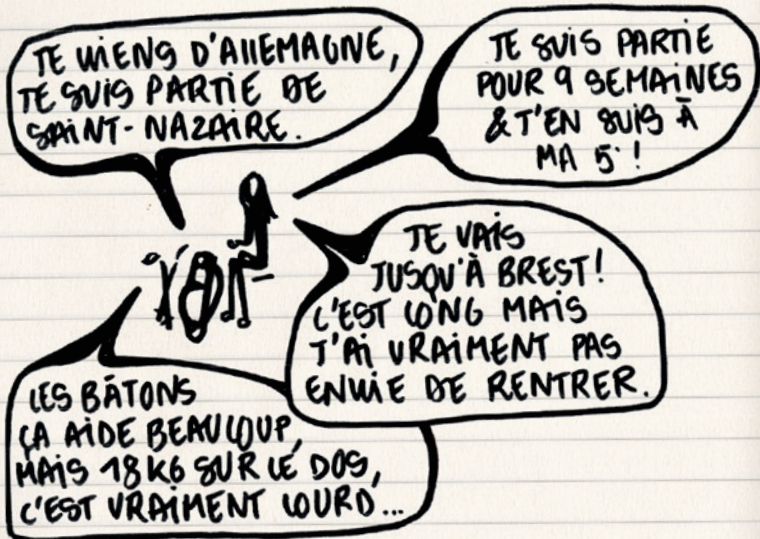 JE VIENS D'ALLEMAGNE,
JE SUIS PARTIE DE
SAINT-NAZAIRE.
JE SUIS PARTIE
POUR 9 SEMAINES
& J'EN SUIS À
MA 5° !
JE VAIS
JUSQU'À BREST !
C'EST LONG MAIS
J'AI VRAIMENT PAS
ENVIE DE RENTRER.
LES BÂTONS
ÇA AIDE BEAUCOUP,
MAIS 18 KG SUR LE DOS,
C'EST VRAIMENT LOURD...